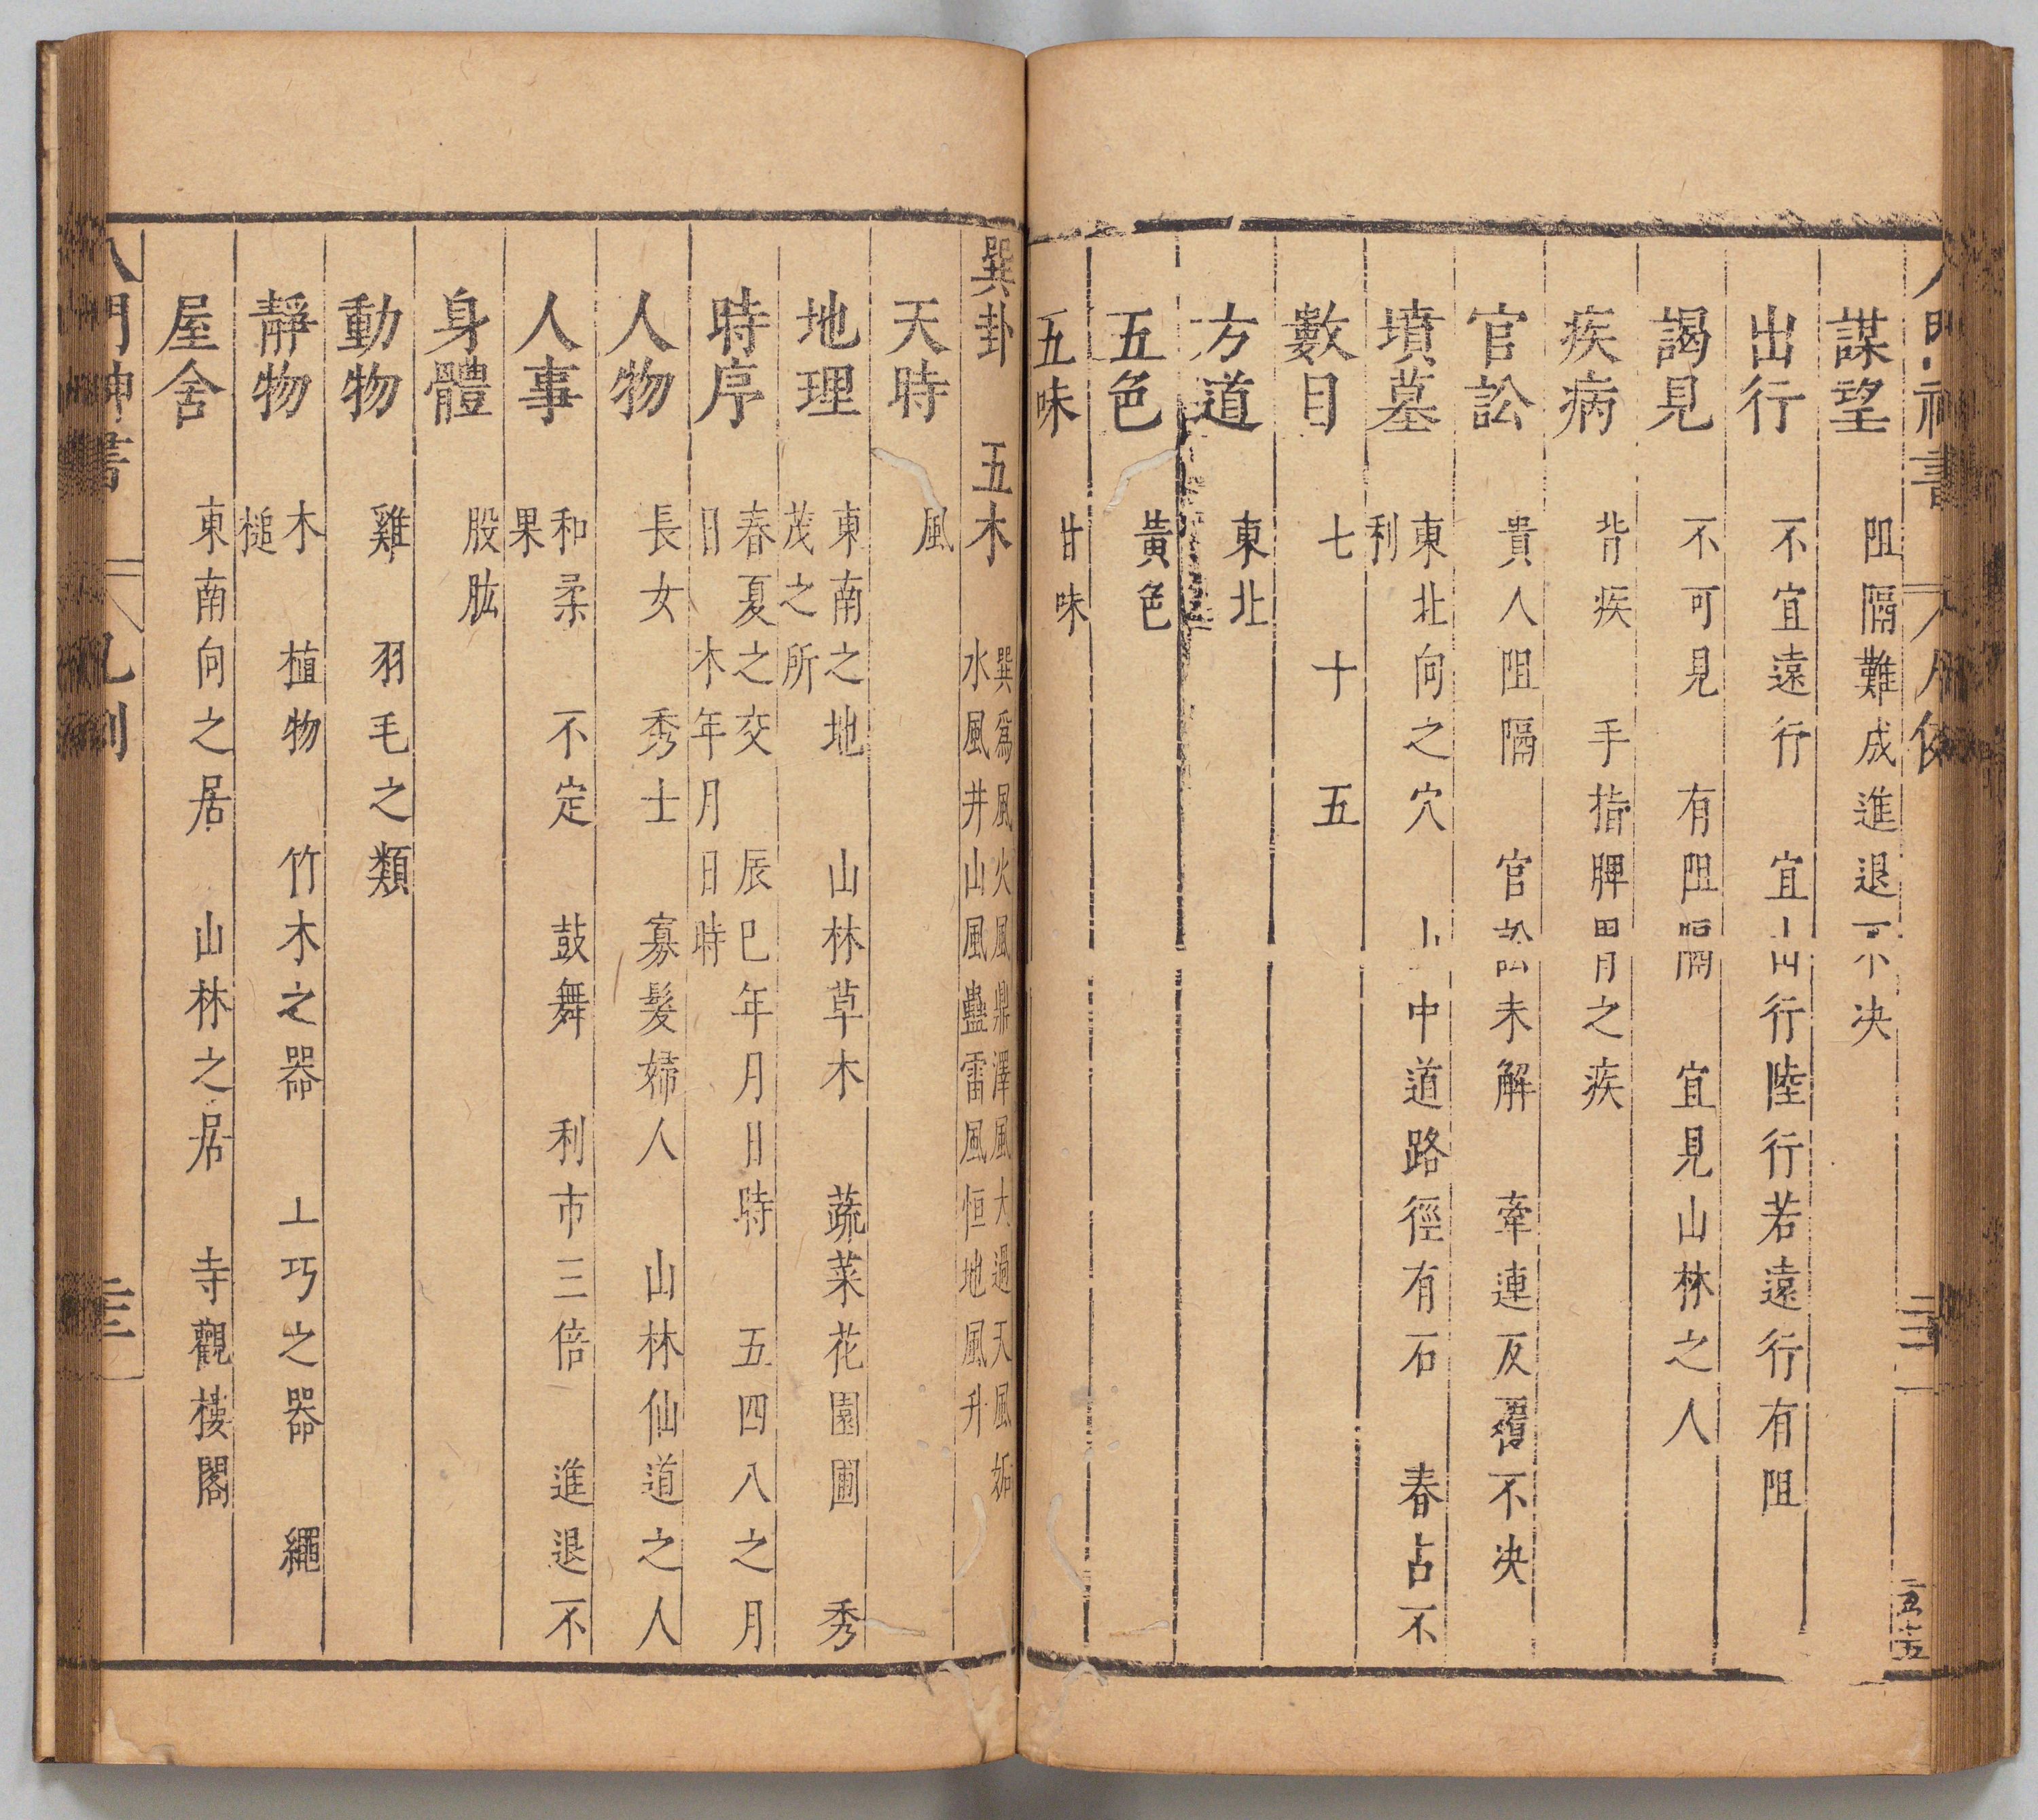 謀望 阻隔難成進退不決
出行 不宜遠行 宜山行陸行若遠行有阻
謁見 不可見 有阻隔 宜見山林之人
疾病 背疾 手指脾胃之疾
官訟 貴人阻隔 官訟未解 牽連反覆不決
墳墓 東北向之穴 山中道路徑有石 春占不
利
數目 七 十 五
方道 東北
五色 黃色
五味 甘味
巽卦 五木 巽爲風火風鼎澤風大過天風姤
水風井山風蠱雷風恒地風升
天時 風
地理 東南之地 山林草木 蔬菜花園圃 秀
茂之所
時序 春夏之交 辰巳年月日時 五四八之月
日 木年月日時
人物 長女 秀士 寡髮婦人 山林仙道之人
人事 和柔 不定 鼓舞 利市三倍 進退不
果
身體 股肱
動物 雞 羽毛之類
靜物 木 植物 竹木之器 工巧之器 繩
槌
屋舍 東南向之居 山林之居 寺觀樓閣